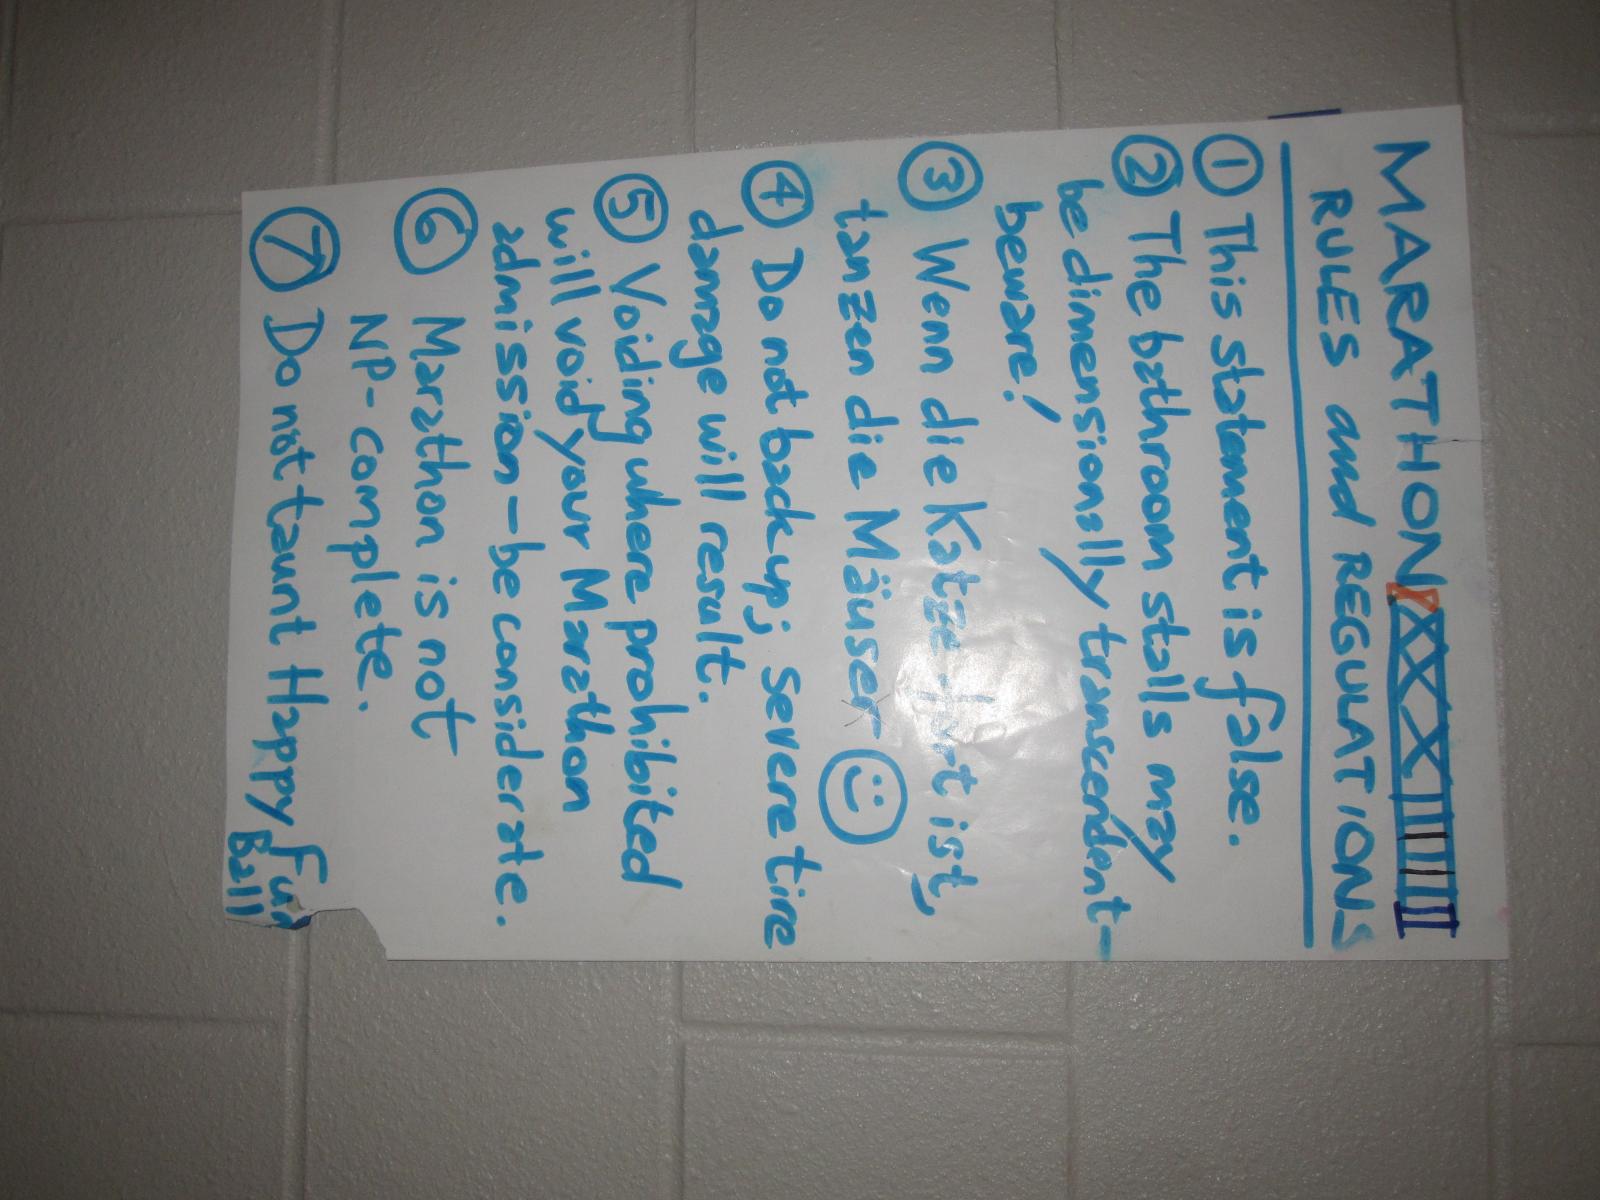 MARATHON XXXIIIIIII
RULES and REGULATIONS
① This statement is false.
② The bathroom stalls may
be dimensionally transcendent-
beware!
③ Wenn die Katze fort ist,
tanzen die Mäuser ☺
④ Do not back up; severe tire
damage will result.
⑤ Voiding where prohibited
will void your Marathon
admission - be considerate.
⑥ Marathon is not
NP-complete.
⑦ Do not taunt Happy Fun
Ball